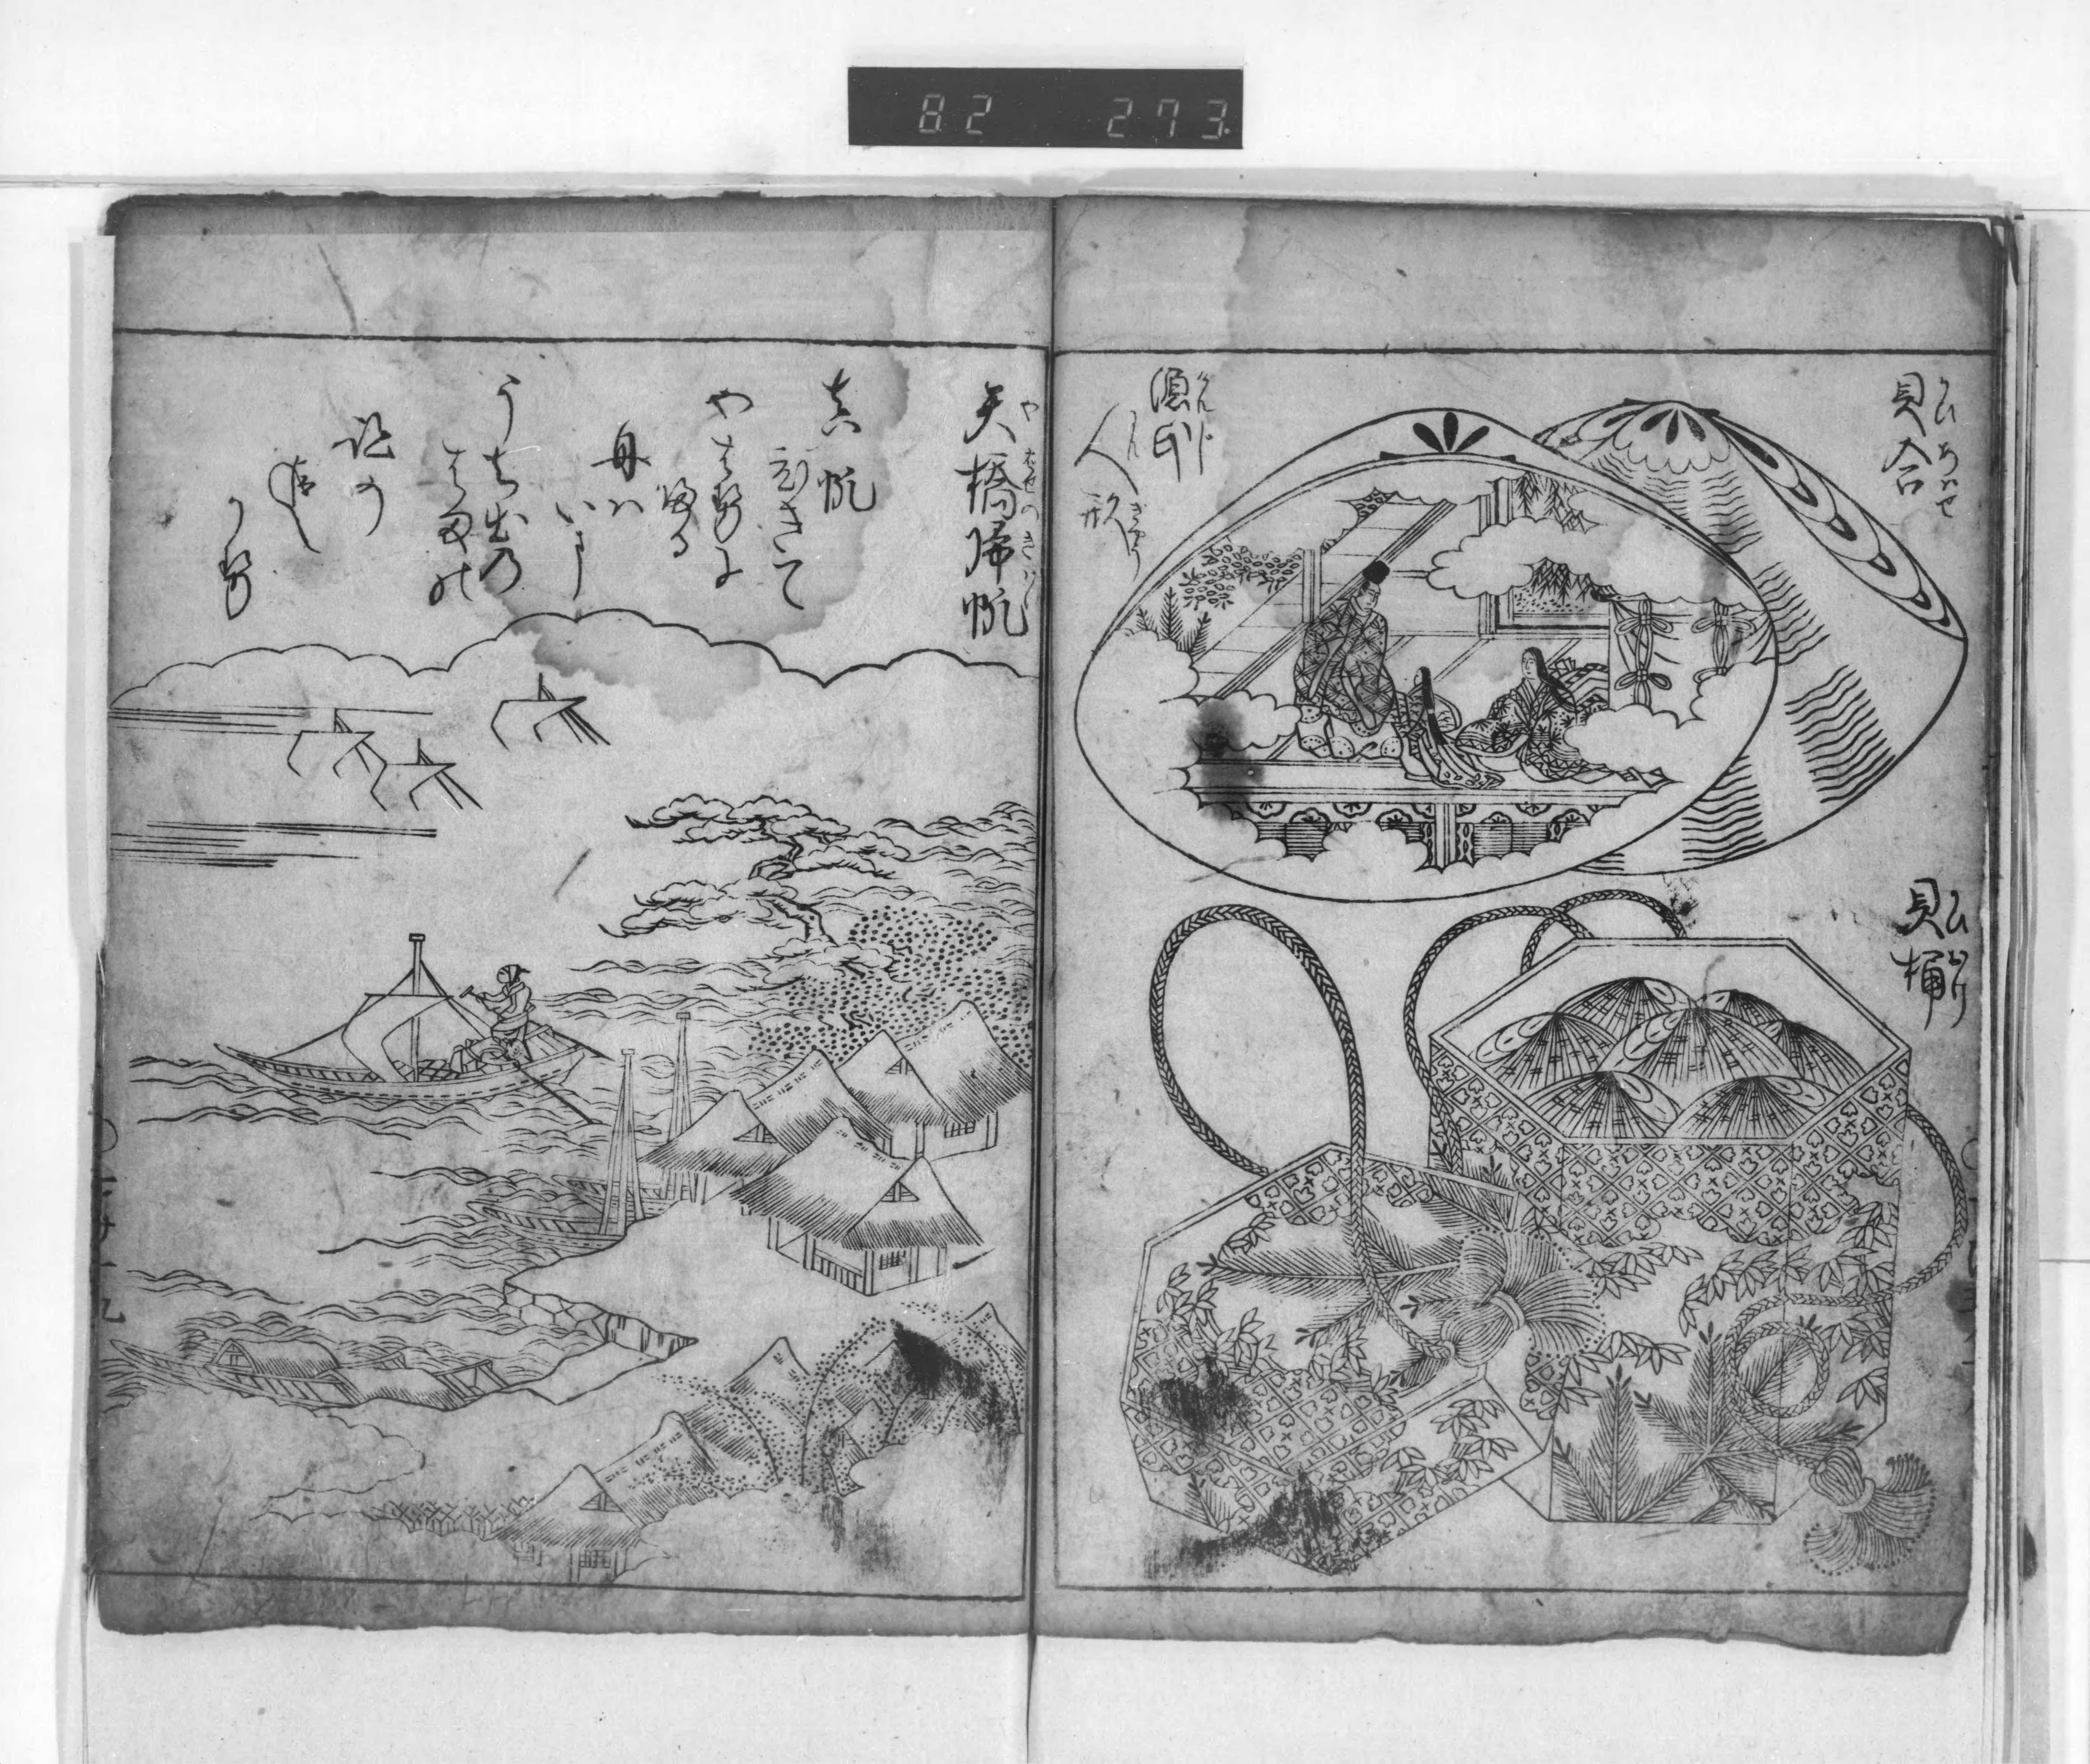 82 273.
貝合
かひあハせ
源氏
げんじ
人形
にんぎやう
貝桶
かひおけ
矢橋帰帆
やばせのきはん
真帆
ひきて
やはせに
帰る
舟ハ
いま
うち出の
はまを
跡の
追
かせ